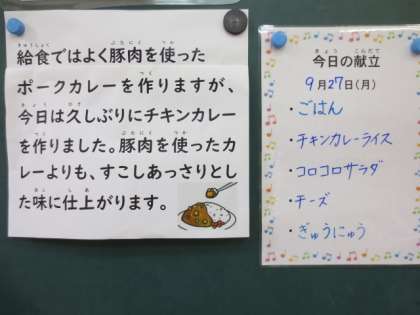 給食ではよく豚肉を使った
ポークカレーを作りますが、
今日は久しぶりにチキンカレー
を作りました。豚肉を使ったカ
レーよりも、すこしあっさりとし
た味に仕上がります。
今日の献立
9月27日(月)
・ごはん
・チキンカレーライス
・コロコロサラダ
・チーズ
・ぎゅうにゅう